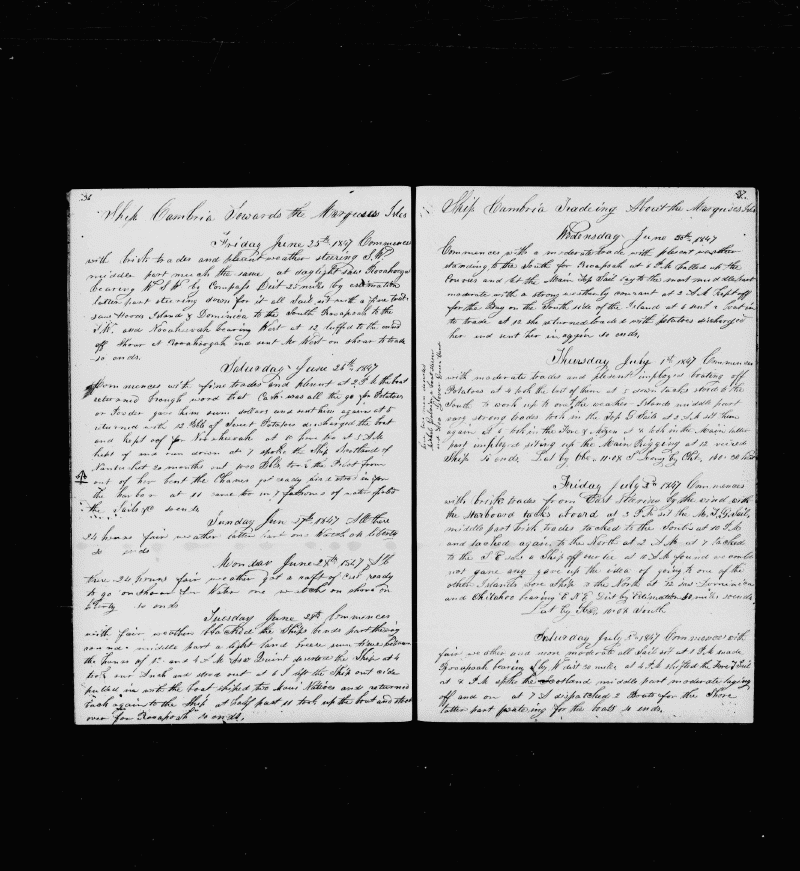 36
Ship Cambria Towards the Marquises Isles
Friday June 25th 1847 Commences
with brisk trades and plesent weather steering S.W.
middle part much the same at daylight saw Rooahooga
bearing W S W by Compass Dist 25 miles by estimation
latter part steering down for it all sail set with a fine trade
saw Hoods Island & Dominica to the South Rooapoah to the
S.W. and Nooaheevah bearing West at 12 luffed to the wind
off shour at Rooahoogah and sent Mr West on shour to trade
so ends
Saturday June 26th 1847
Commences with fine trades and plesent at 2 P.M. the boat
returned brough word that Cash was all the go for Potatoes
or Powder gave him sum dollars and sent him again at 5
returned with 12 Bbls of Sweet Potatoes discharged the boat
and kept off for Nooaheevah at 10 hove too at 5 A.M.
kept of and run down at 7 spoke the Ship Scotland of
Nantucket 20 months out 1000 Bbls
out of her boat the Chaines got ready and stood in for
the harbour at 11 came too in 7 fathoms of water furled
the Sails &c so ends
Sunday Jun 27th 1847 All these
24 hours fair weather latter part one Watch on liberty
so ends
Monday June 28th 1847 All
these 24 hours fair weather got a raft of Cask ready
to go on shour for Water one watch on shour on
liberty so ends
Tuesday June 29th Commences
with fair weather blacked the Ships bends part the way
round middle part a light land breeze sum time between
the hours of 12 and 4 A.M. deserted the Ship at 4
took our Anch and stood out at 6 left the Ship out side
pulled in with the boat shiped two Mour Natives and returned
back again to the Ship at half past 11 took up the boat and stood
over for Rooapoah so ends.
37.
Ship Cambria Tradeing About the Marquises Isles
Wednesday June 30th 1847
Commences with a moderate trade with plesent weather
standing to the South for Rooapoah at 6 P.M. hailed up the
Courses and let the Main Top Sail lay to the mast middle part
moderate with a strong westerly current at 2 A.M. Kept off
for the Bay on the South side of the Island at 6 sent a boat in
to trade at 12 she returned loaded with potatoes discharged
her and sent her in again so ends.
Thursday July 1st 1847 Commences
with moderate trades and plesent imployed boating off
Potatoes at 4 took the last of them at 5 down tacks stood to the
South to work up to one of the weather Islands middle part
very strong trades took in the Top G Sails at 2 A.M. set them
again at 6 took in the Fore & Mizen at 8 took in the Main latter
part imployed siting up the Main Rigging at 12 veired
Ship So ends Lat by Obs. 11.08 S Long by Chr. 140.30 West
Friday July 2d 1847 Commences
with brisk trades from East steering by the wind with
the Starboard tacks aboard at 3 P.M. set the M.T.G. Sail,
middle part brisk trades tacked to the South at 10 P.M
and tacked again to the North at 2 A.M. at 7 tacked
to the S E saw a Ship off our lee at 10 A.M. found we could
not gane any gave up the idea of going to one of the
other Islands wore Ship to the North at 12 saw Dominica
and Ohitahoo bearing E N E Dist by Estimation 30 miles so ends
Lat by Obs, 10.02 South
Saturday July 3d 1847 Commences with
fair weather and more moderate all Sail set at 1 P.M. made
Rooapoah bearing by W dist 30 miles at 4 P.M. shifted the Fore T Sail
at 8 P.M. spoke the Scotland middle part moderate laying
off and on at 7 A dispatched 2 Boats for the Shore
latter part waitering for the boats so ends.